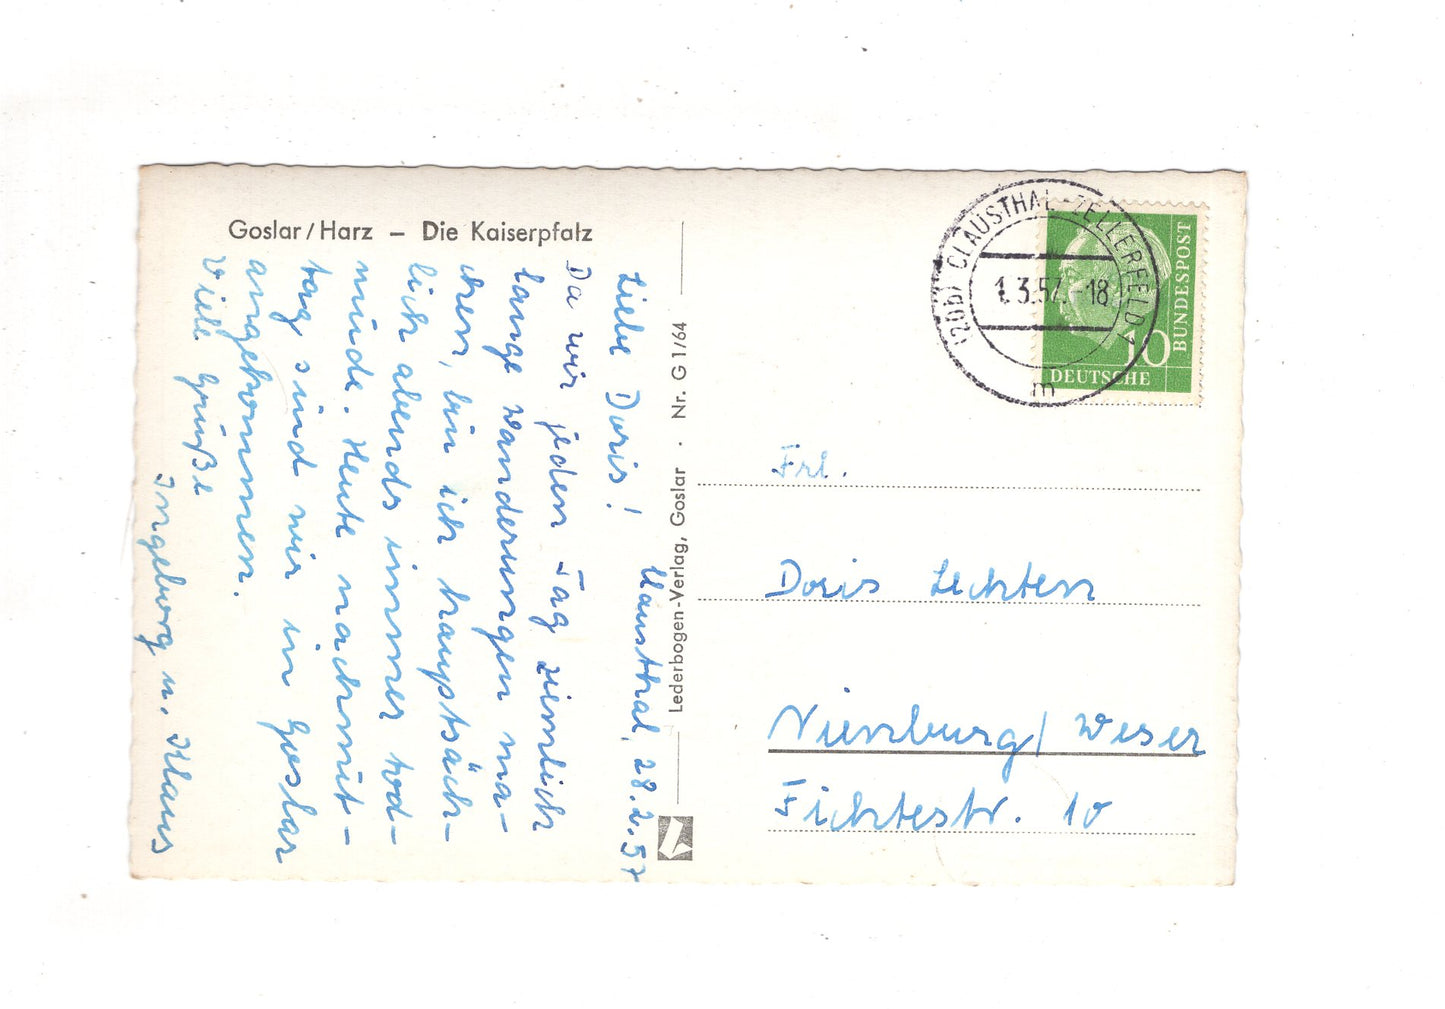 Goslar/Harz – Die Kaiserpfalz
Clausthal, 28.2.57
Liebe Doris!
Da wir jeden Tag ziemlich
lange Wanderungen ma-
chen, bin ich hauptsäch-
lich abends immer tod-
müde. Heute nachmit-
tag sind wir in Goslar
angekommen.
Viele Grüße
Ingeborg u. Klaus
Lederbogen-Verlag, Goslar · Nr. G 1/64
(20b) CLAUSTHAL-ZELLERFELD 1
1.3.57.-18
m
DEUTSCHE
BUNDESPOST
10
Frl.
Doris Lechten
Nienburg/Weser
Fichtestr. 10